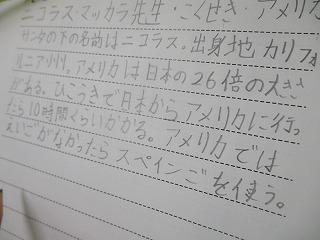 ニコラス・マッカラ先生・こくせき・アメリカ
サンタの下の名前はニコラス。出身地 カリフォ
ルニア州。アメリカは日本の26倍の大きさ
がある。ひこうきで日本からアメリカに行っ
たら10時間くらいかかる。アメリカでは
えいごがなかったら スペインごを使う。